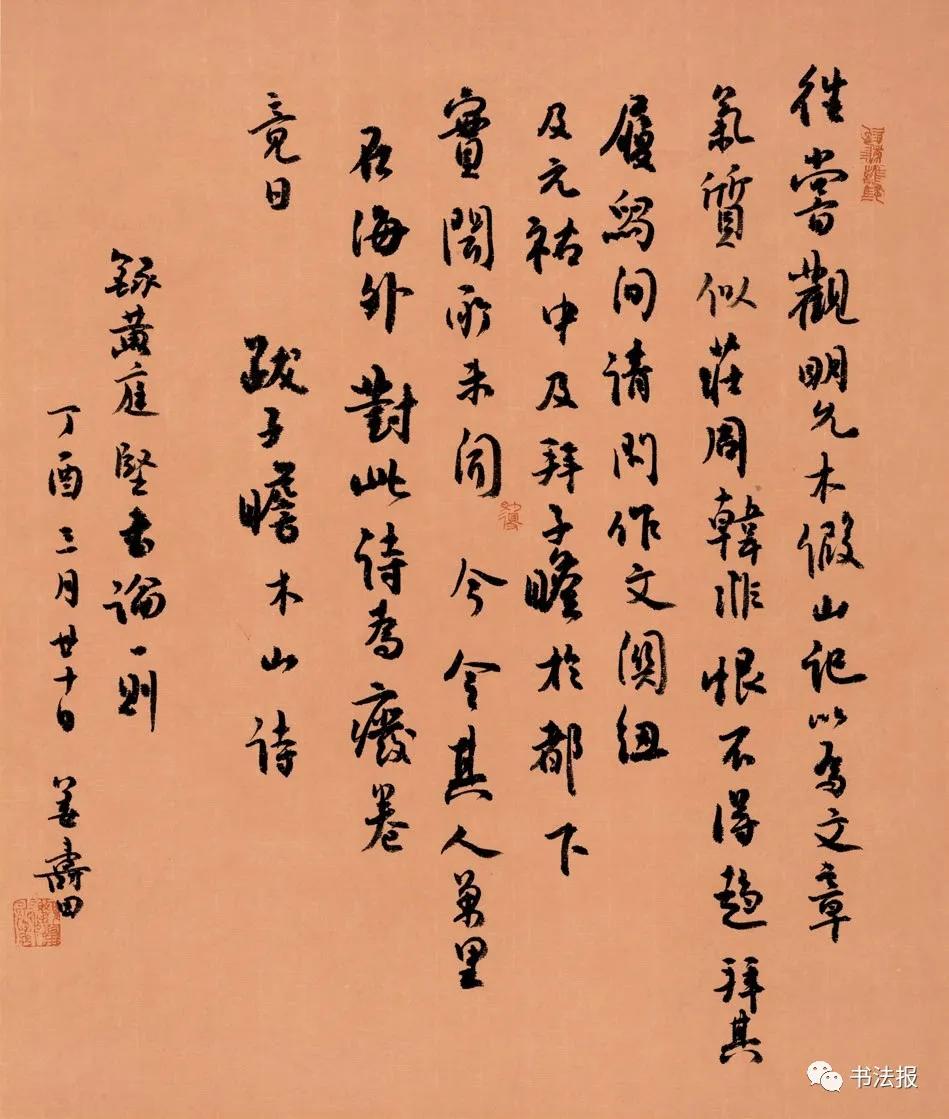 往嘗觀明允木假山記以為文章
氣質似莊周韓非恨不得趨拜其
履舄间請问作文關纽
及元祐中及拜子瞻於都下
實聞所未闻 今令其人萬里
在海外對此诗為廢卷
竟日 跋子瞻木山诗
録黄庭堅书論一則
丁酉三月廿十日 姜壽田
书法报